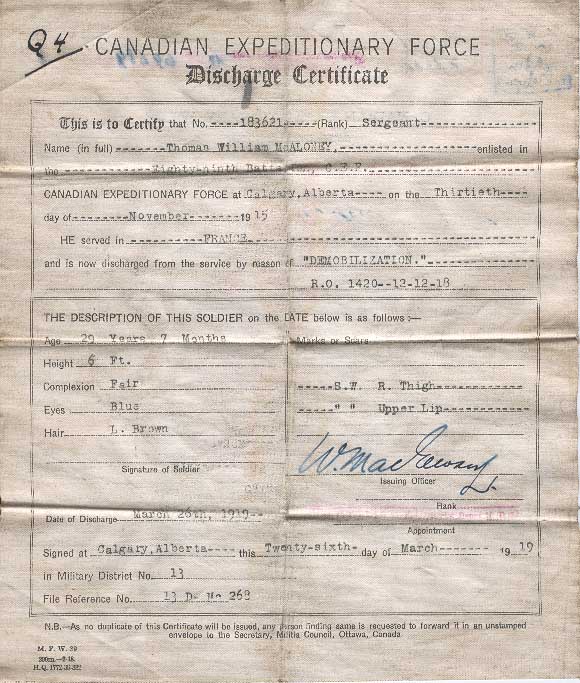 Q4
CANADIAN EXPEDITIONARY FORCE
Discharge Certificate
This is to Certify that No.----183621----(Rank) Sergeant----------------
Name (in full)-------Thoman William McALONEY,--------------------enlisted in
the -------------Eighty-ninth Battalion, C.E.F.--------------------
CANADIAN EXPEDITIONARY FORCE at Calgary,Alberta---- on the Thirtieth----
day of---------November-------1915
HE served in -----------FRANCE
and is now discharged from the service by reason of "DEMOBILIZATION."---------------
R.O. 1420--12-12-18
THE DESCRIPTION OF THIS SOLDIER on the DATE below is as follows :—
Age 29 Years 7 Months Marks or Scars
Height 6 Ft.
Complexion Fair -----S.W. R. Thigh--------------
Eyes Blue -----" " Upper Lip------------
Hair L. Brown
Signature of Soldier
Issuing Officer
Rank
Date of Discharge March 26th, 1919--
Appointment
Signed at Calgary,Alberta---- this Twenty-sixth- day of March------- 1919
in Military District No. 13
File Reference No. 13 D. Mc 268
N.B.—As no duplicate of this Certificate will be issued, any person finding same is requested to forward it in an unstamped
envelope to the Secretary, Militia Council, Ottawa, Canada.
M. F. W. 39
300m.—2-18.
H.Q. 1772-39-322